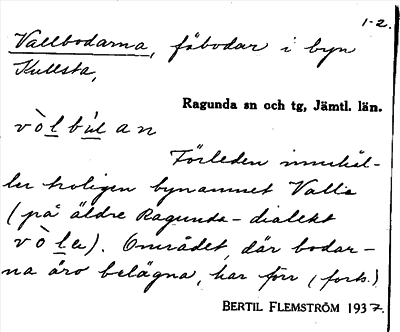 1-2.
Vallbodarna, fäbodar i byn
Kullsta,
Ragunda sn och tg, Jämtl. län.
vò̀lbúlan
Förleden innehål-
ler troligen bynamnet Valla
(på äldre Ragunda-dialekt
vòla). Området, där bodar-
na äro belägna, har förr (forts.)
BERTIL FLEMSTRÖM 1937.